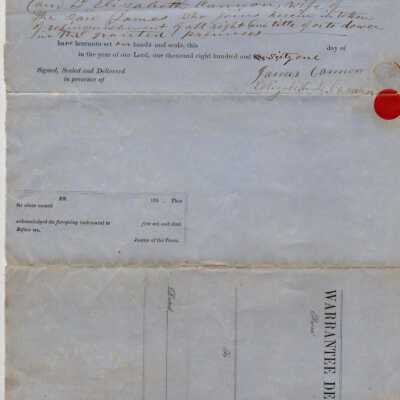 and I Elizabeth Cannon, wife of
the said James who joins herein in token
of relinquishment of all right and title of or to dower
in the granted premises
have hereunto set our hands and seals, this day of
in the year of our Lord, one thousand eight hundred and Sixty one
Signed, Sealed and Delivered
in presence of
James Cannon
Elizabeth Cannon
ss. 186 . Then
the above named
acknowledged the foregoing instrument to free act and deed.
Before me,
Justice of the Peace.
WARRANTEE DE
From
To
Dated